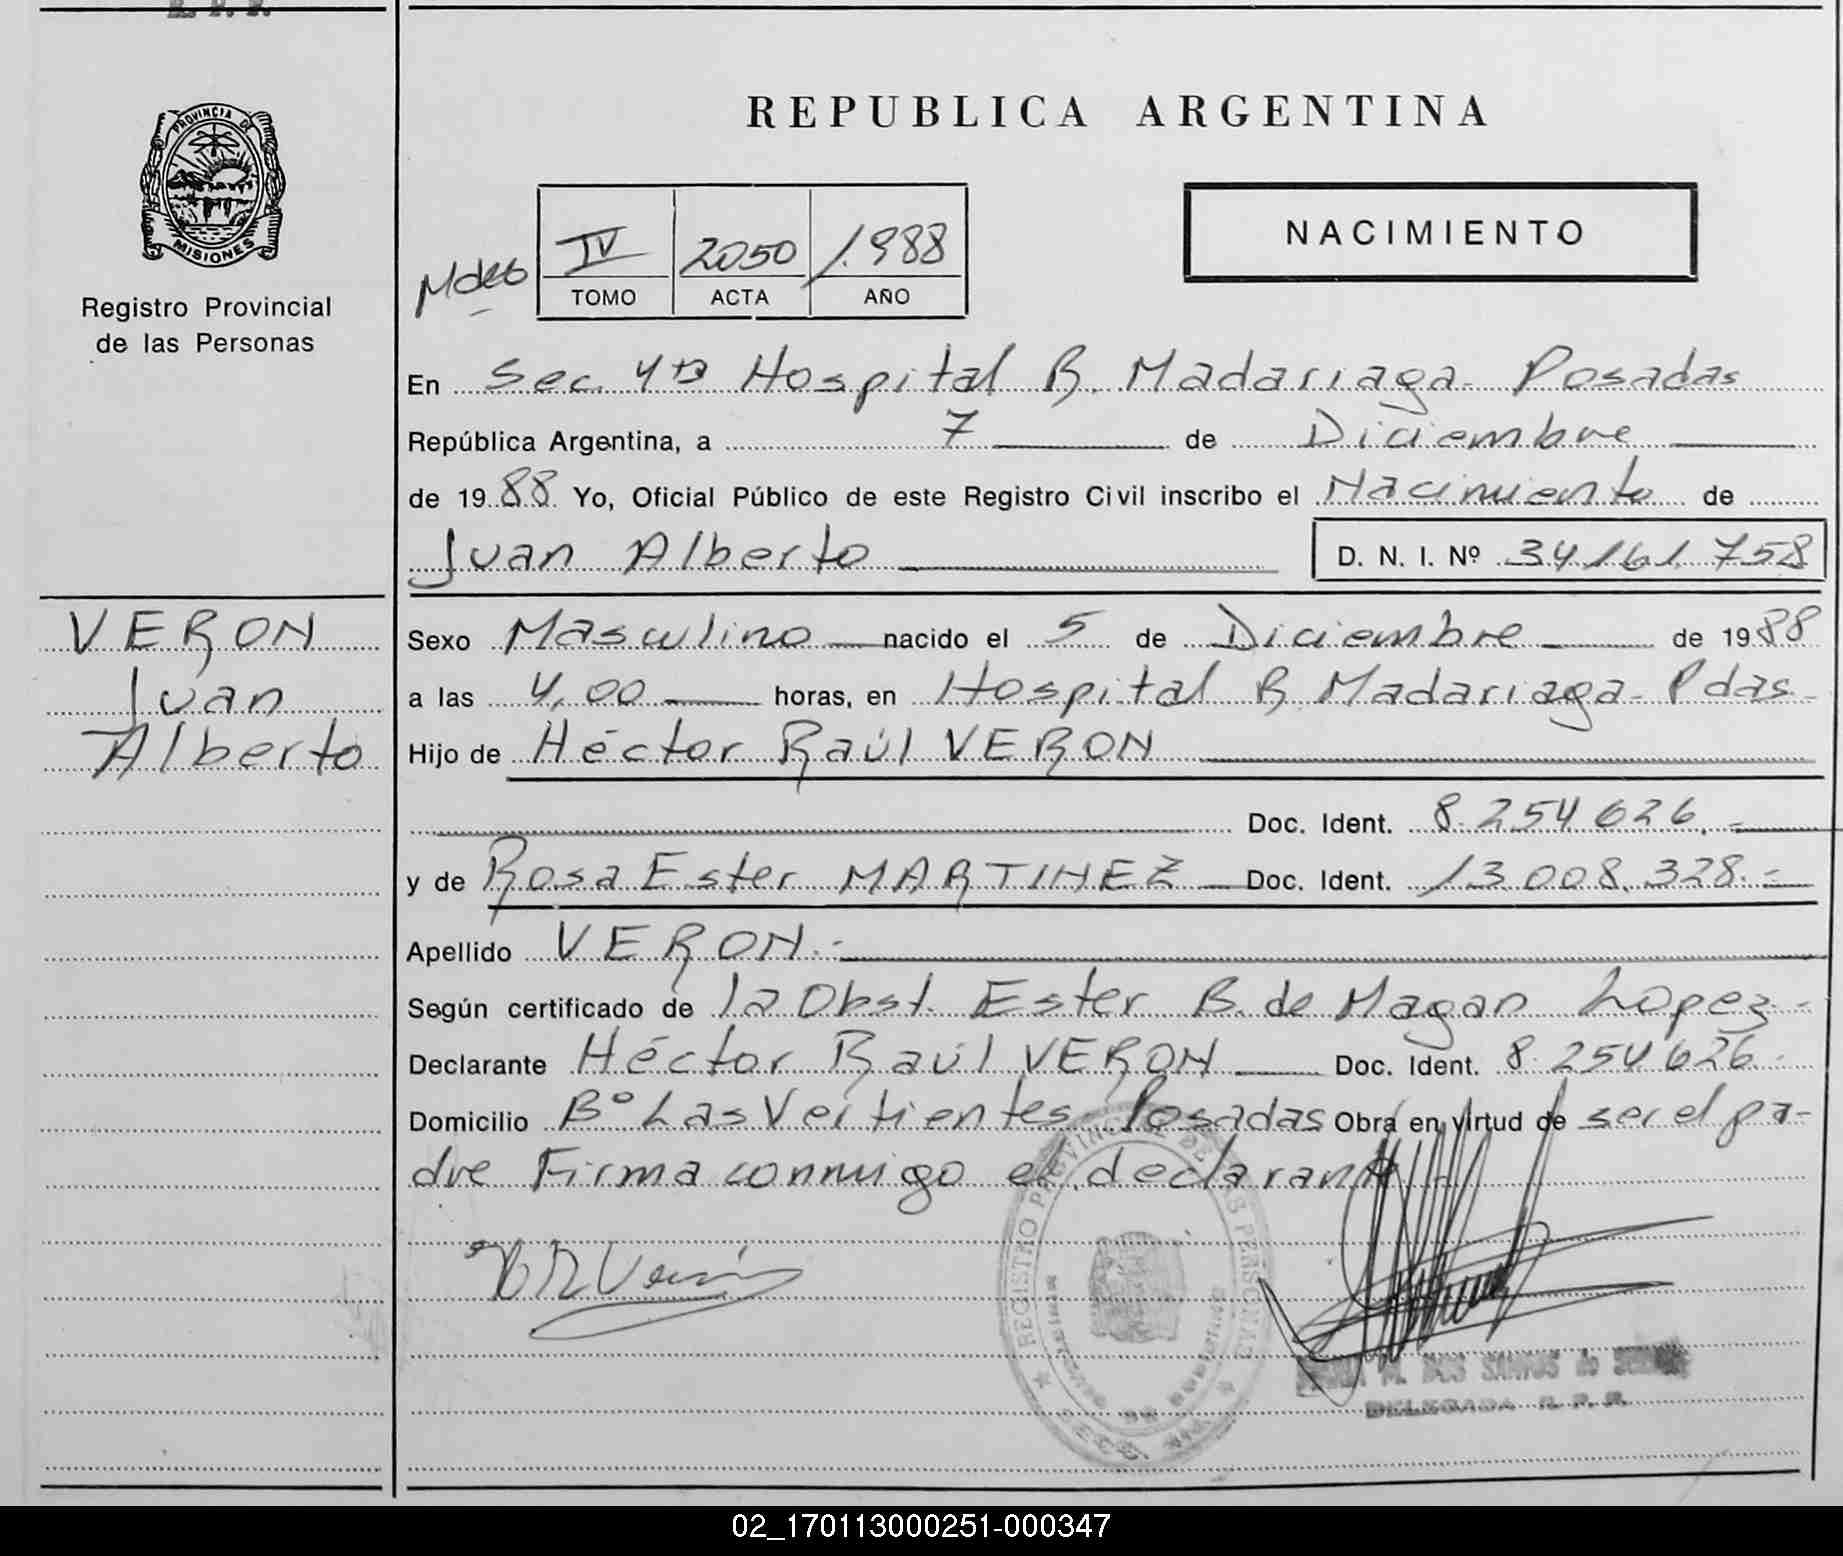 R. P. P.
PROVINCIA DE
MISIONES
Registro Provincial
de las Personas
VERON
Juan
Alberto
REPUBLICA ARGENTINA
NACIMIENTO
IV 2050 1.988
TOMO ACTA AÑO
En Sec. 4ta Hospital R. Madariaga - Posadas
República Argentina, a 7 de Diciembre
de 1988 Yo, Oficial Público de este Registro Civil inscribo el Nacimiento de
Juan Alberto D. N. I. Nº 34.161.758
Sexo Masculino nacido el 5 de Diciembre de 1988
a las 4,00 horas, en Hospital R. Madariaga - Pdas -
Hijo de Héctor Raúl VERON
Doc. Ident. 8.254.626.-
y de Rosa Ester MARTINEZ Doc. Ident. 13.008.328.-
Apellido VERON.-
Según certificado de la Obst. Ester B. de Magan Lopez.-
Declarante Héctor Raúl VERON Doc. Ident. 8.254.626.-
Domicilio Bº Las Vertientes Posadas Obra en virtud de ser el pa-
dre Firma conmigo el declarante
H R Verón
REGISTRO PROVINCIAL DE LAS PERSONAS
M. DOS SANTOS de
DELEGADA R. P. P.
02_170113000251-000347